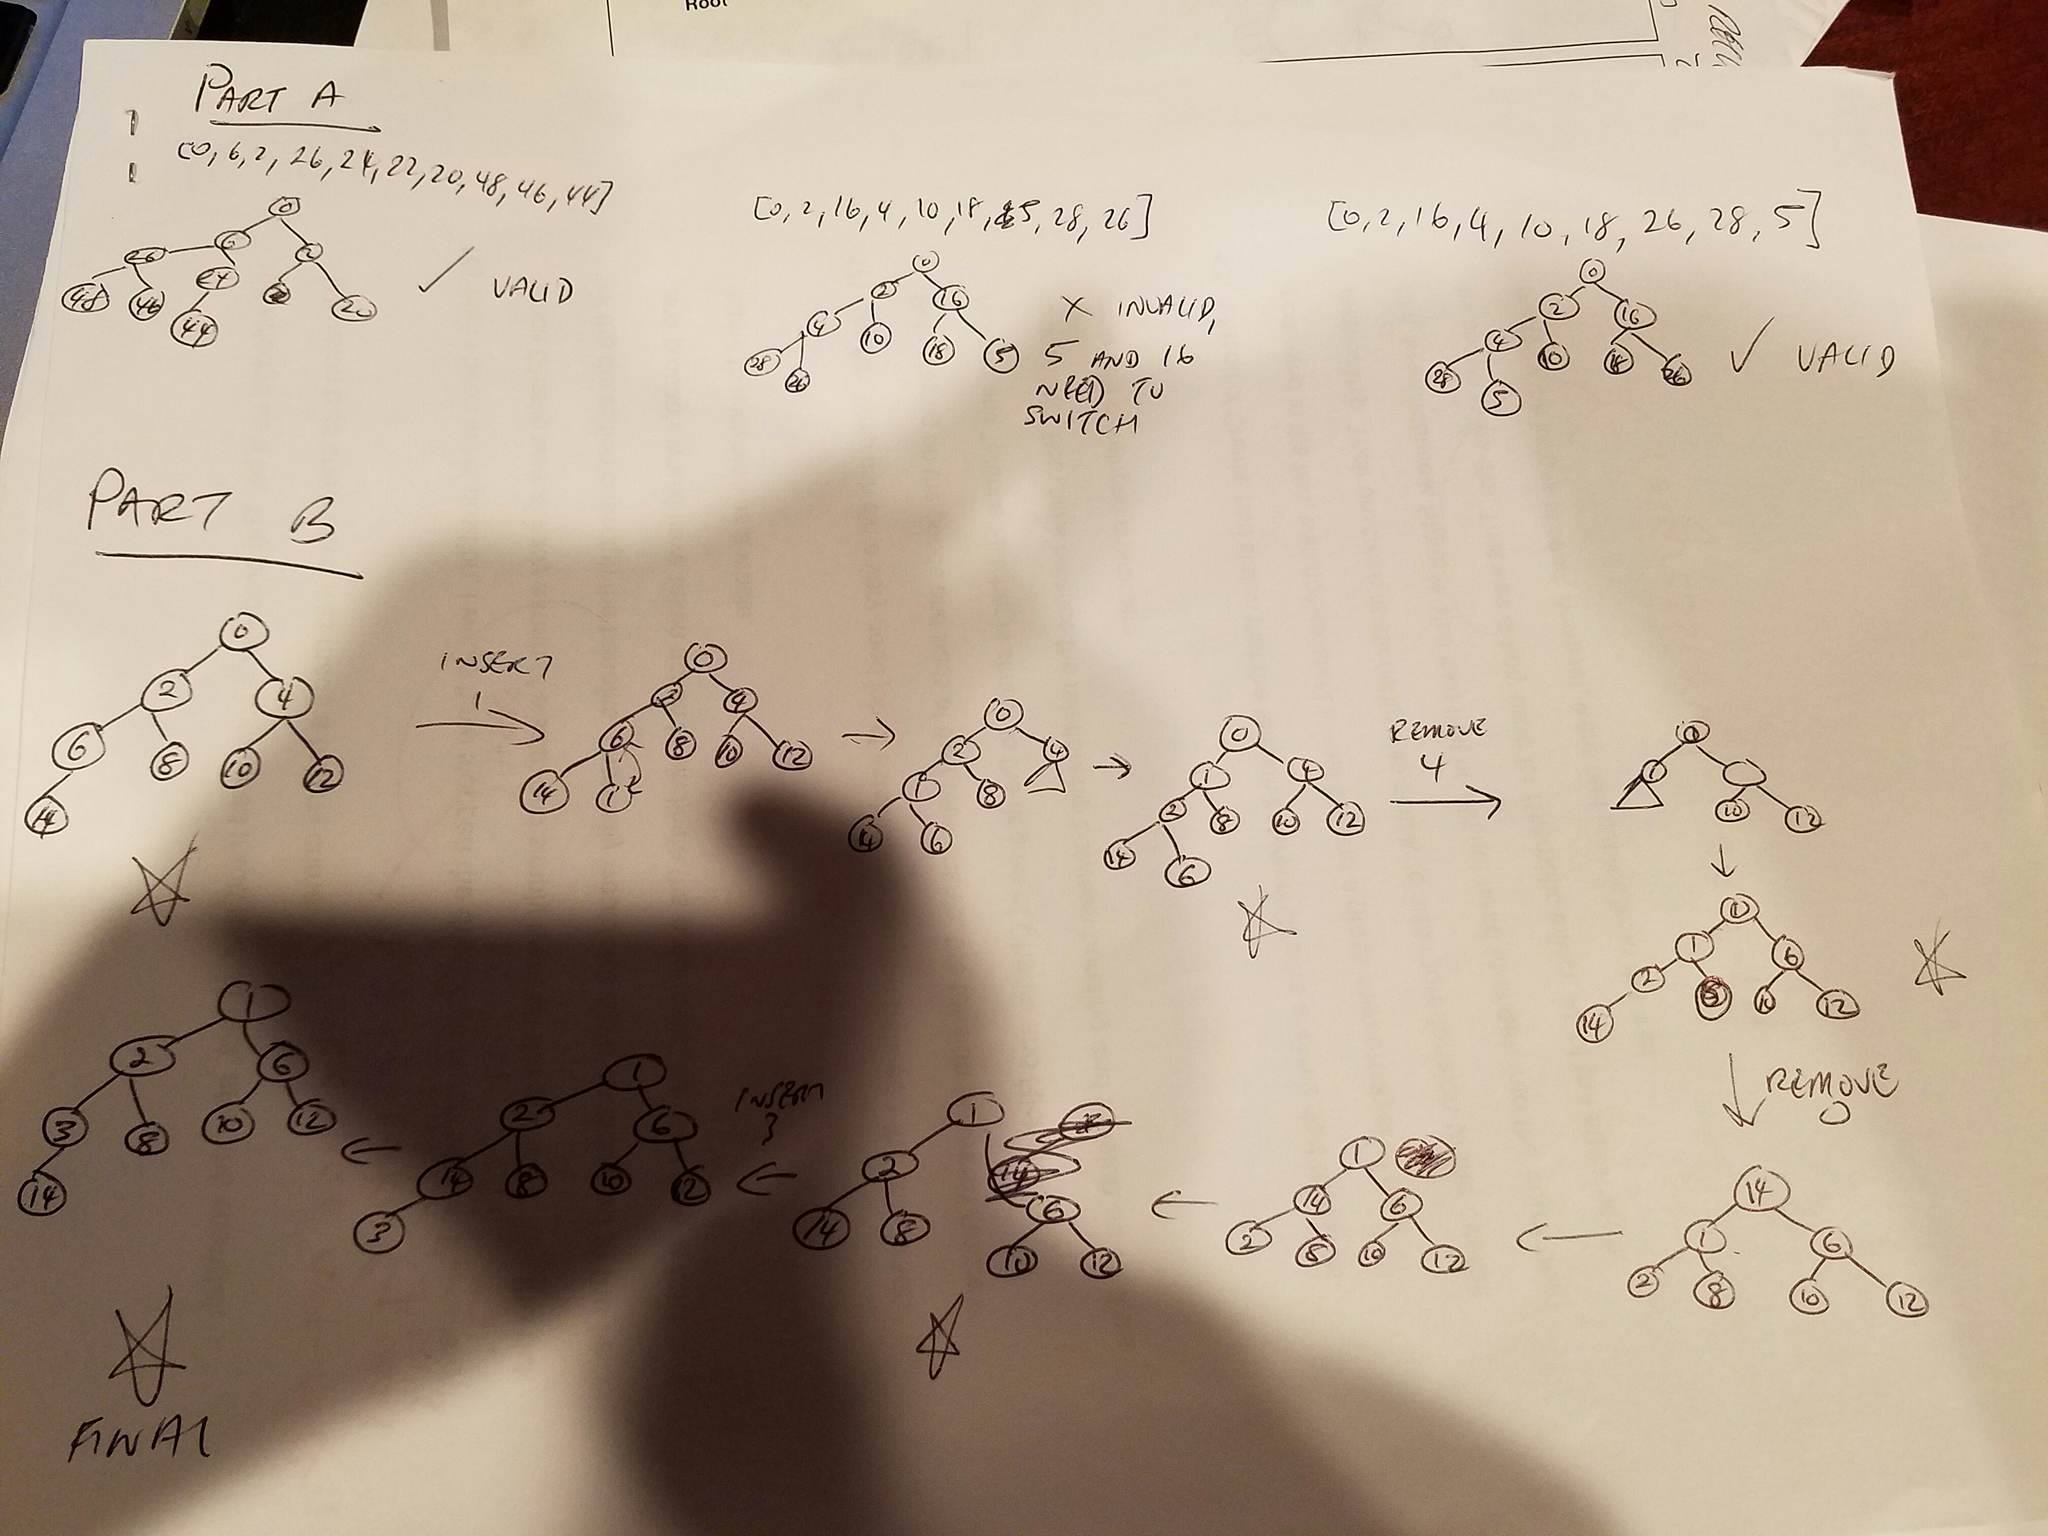 Root
PART A
[0, 6, 2, 26, 24, 22, 20, 48, 46, 44]
0
6 2
26 24 20
48 46 44
✓ VALID
[0, 2, 16, 4, 10, 18, 5, 28, 26]
0
2 16
4 10 18 5
28 26
X INVALID,
5 AND 16
NEED TO
SWITCH
[0, 2, 16, 4, 10, 18, 26, 28, 5]
0
2 16
4 10 18 26
28 5
✓ VALID
PART B
0
2 4
6 8 10 12
14
INSERT
1
0
2 4
6 8 10 12
14 1
0
2 4
1 8
14 6
0
1 4
2 8 10 12
14 6
REMOVE
4
0
1
10 12
0
1 6
2 8 10 12
14
REMOVE
0
14
1 6
2 8 10 12
1
14 6
2 8 10 12
1
2 6
14 8 10 12
INSERT
3
1
2 6
14 8 10 12
3
1
2 6
3 8 10 12
14
FINAL